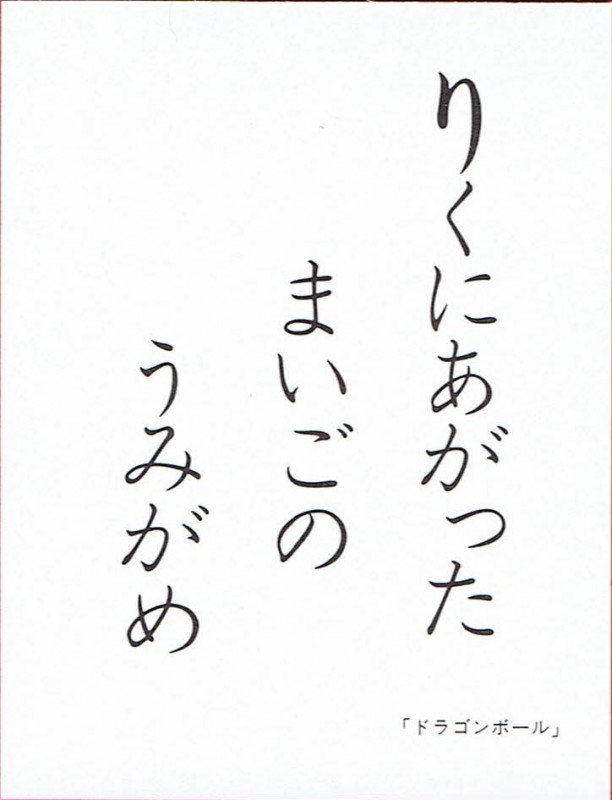 りくにあがった
まいごの
うみがめ
「ドラゴンボール」